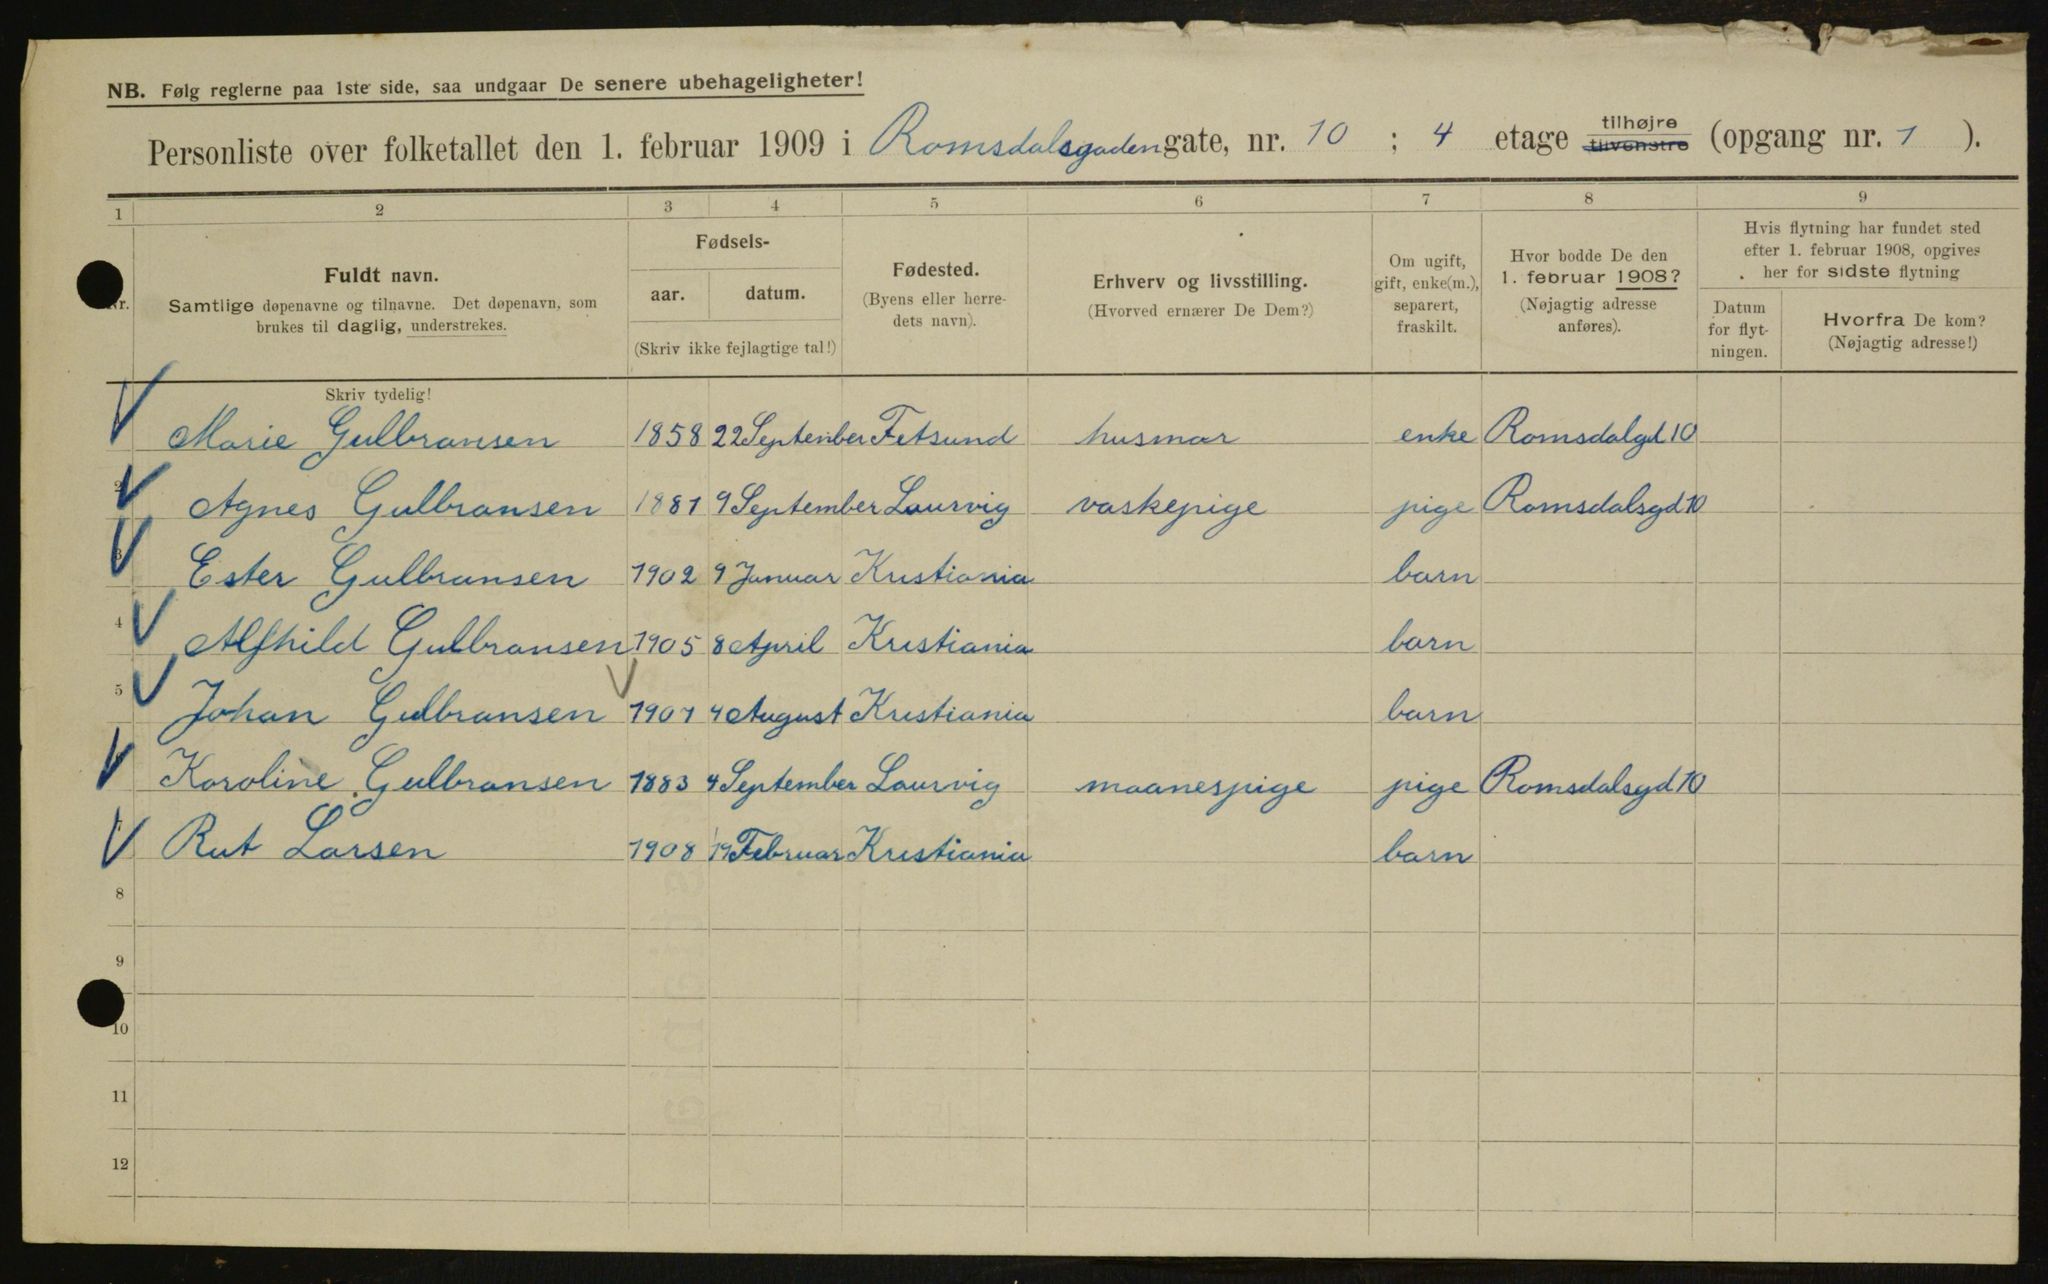 NB. Følg reglerne paa 1ste side, saa undgaar De senere ubehageligheter!
Personliste over folketallet den 1. februar 1909 i Romsdalsgaden gate, nr. 10 ; 4 etage tilhøjre tilvenstre (opgang nr. 1 ).
1 2 3 4 5 6 7 8 9
Nr.
Fuldt navn.
Samtlige døpenavne og tilnavne. Det døpenavn, som
brukes til daglig, understrekes.
Fødsels-
aar. datum.
(Skriv ikke fejlagtige tal!)
Fødested.
(Byens eller herre-
dets navn).
Erhverv og livsstilling.
(Hvorved ernærer De Dem?)
Om ugift,
gift, enke(m.),
separert,
fraskilt.
Hvor bodde De den
1. februar 1908?
(Nøjagtig adresse
anføres).
Hvis flytning har fundet sted
efter 1. februar 1908, opgives
her for sidste flytning
Datum
for flyt-
ningen.
Hvorfra De kom?
(Nøjagtig adresse!)
Skriv tydelig!
Marie Gulbransen 1858 22 September Fetsund husmor enke Romsdalgd 10
2 Agnes Gulbransen 1881 9 September Laurvig vaskepige pige Romsdalsgd 10
3 Ester Gulbransen 1902 9 Januar Kristiania barn
4 Alfhild Gulbransen 1905 8 April Kristiania barn
5 Johan Gulbransen 1907 4 August Kristiania barn
Karoline Gulbransen 1883 4 September Laurvig maanespige pige Romsdalsgd 10
7 Rut Larsen 1908 19 Februar Kristiania barn
8
9
10
11
12